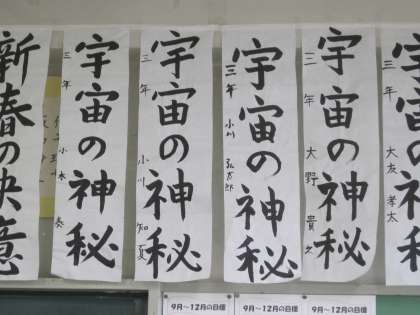 大友孝太
宇宙の神秘
三年 大野貴久
宇宙の神秘
三年 小川弘太郎
宇宙の神秘
三年 小川知夏
宇宙の神秘
三年 小木奏
新春の決意
9月～12月の目標
9月～12月の目標
9月～12月の目標